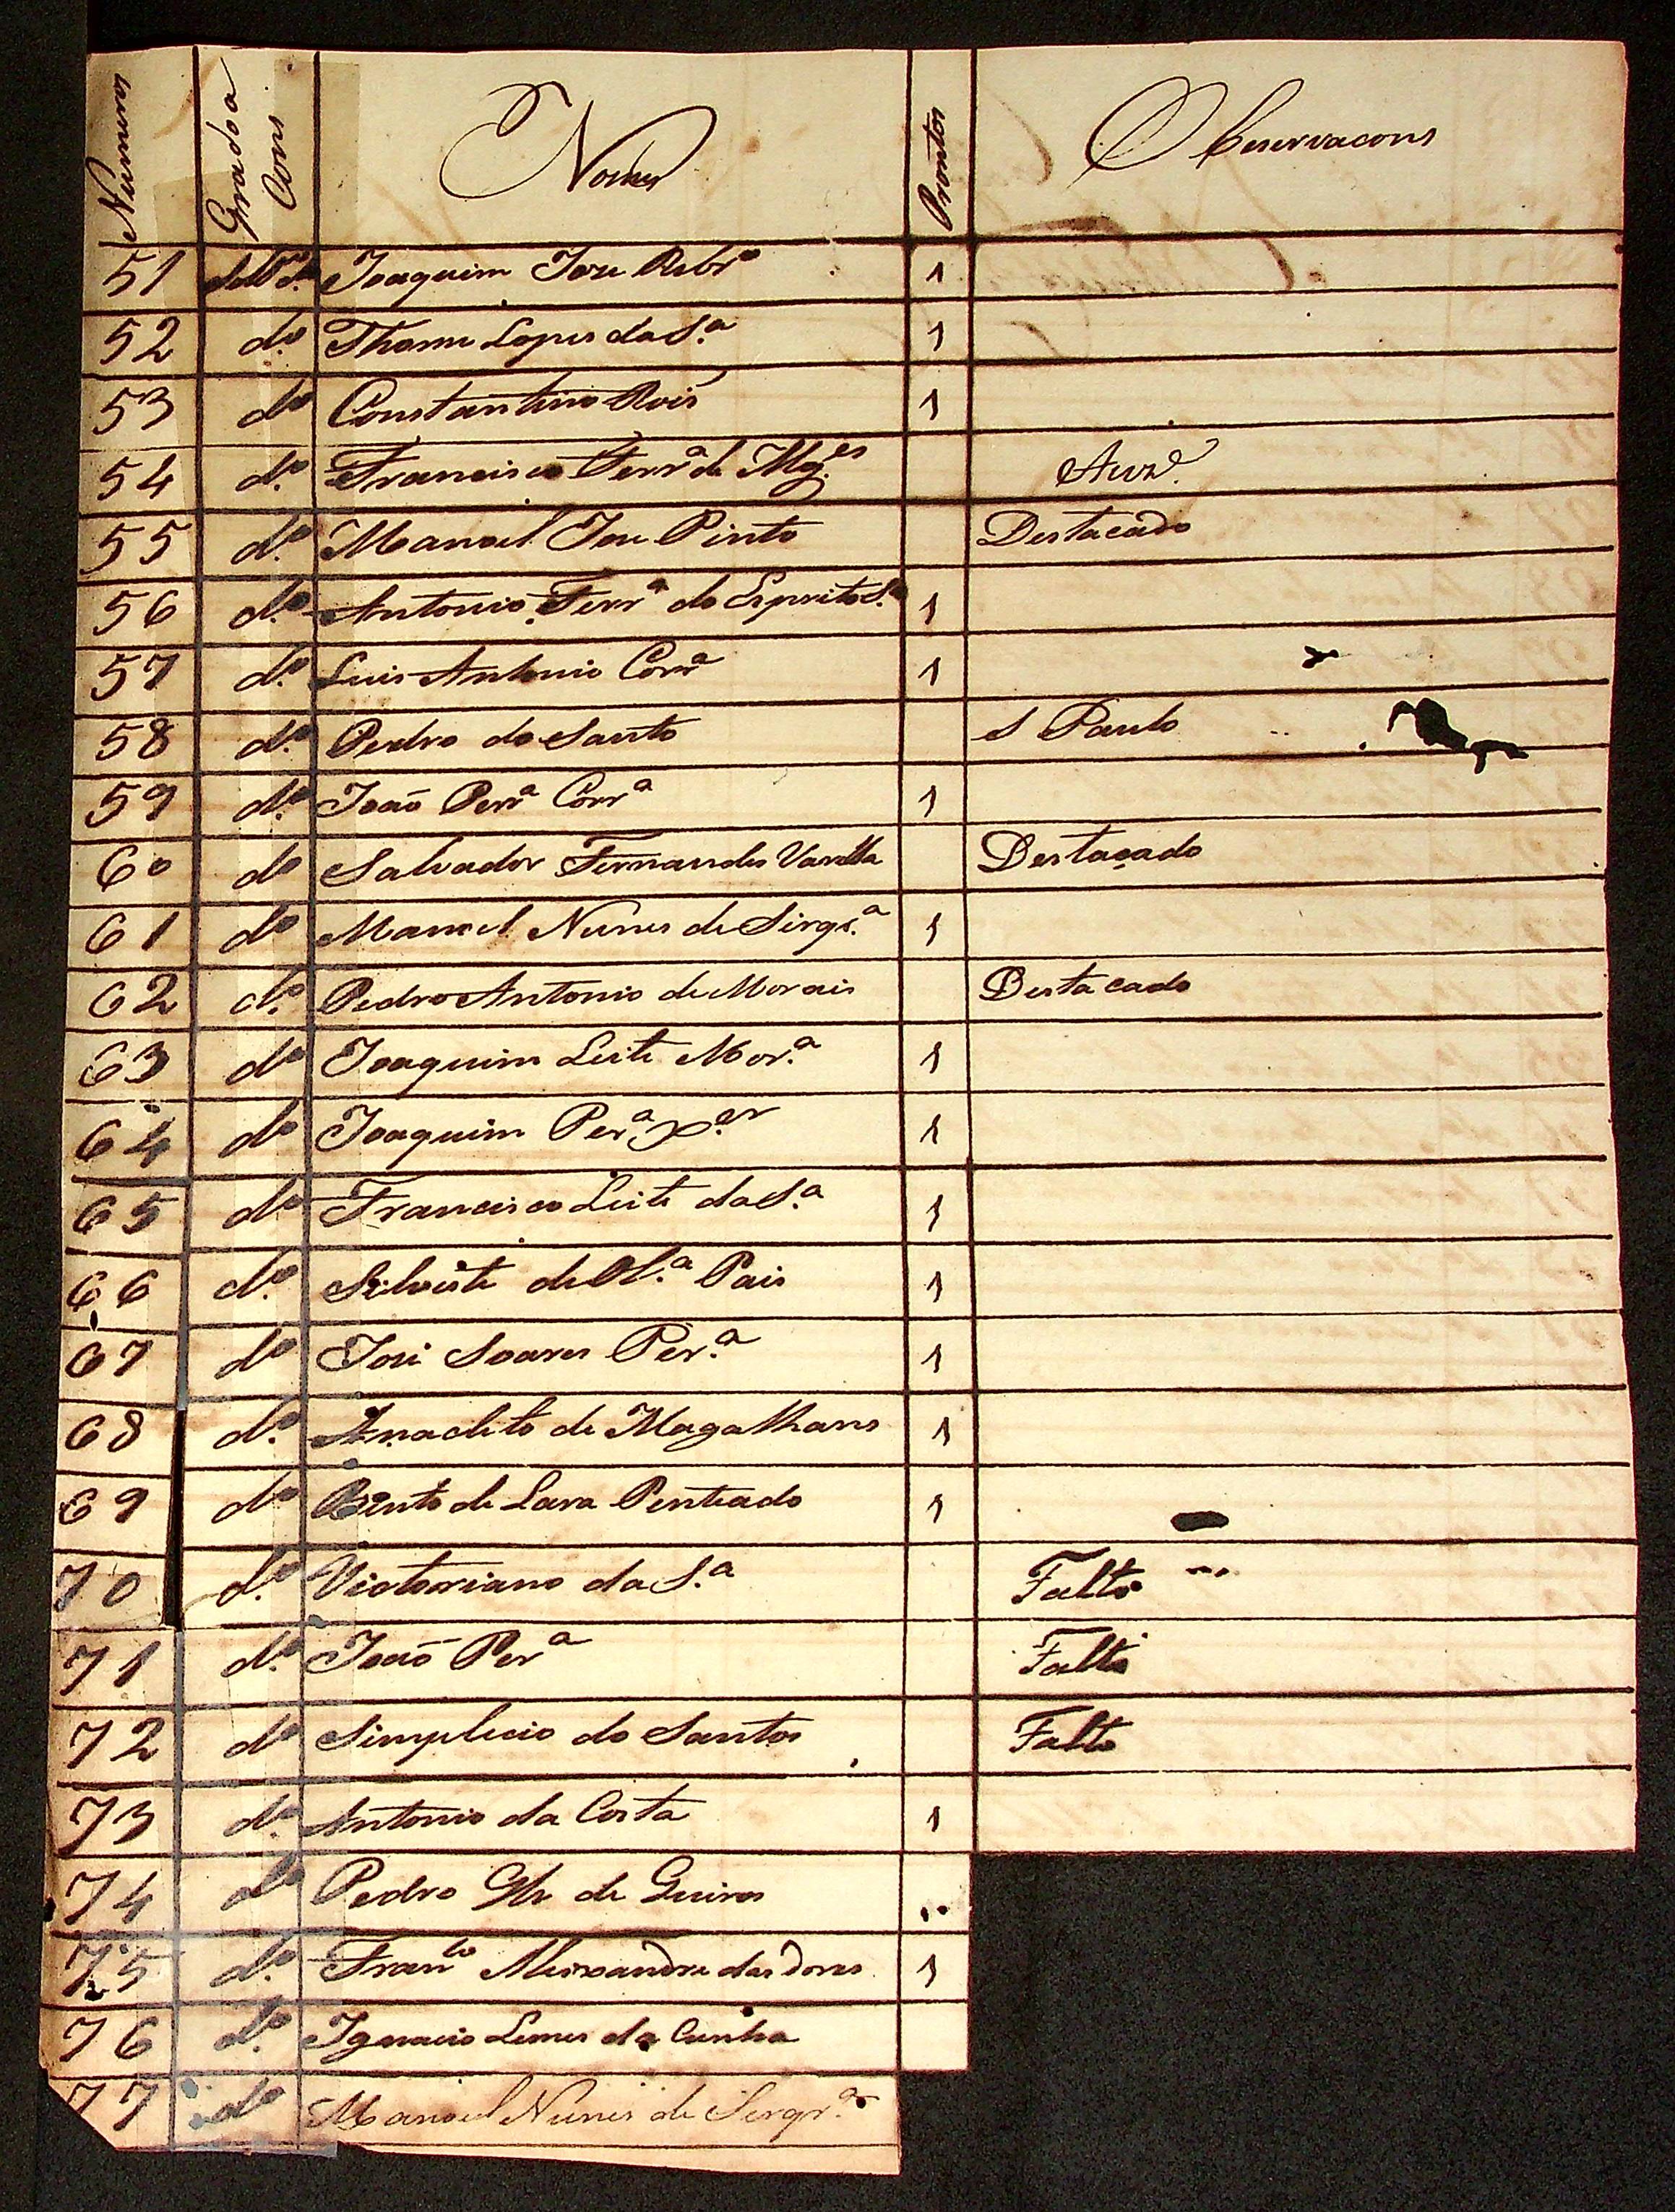 Numeros Gradoa Cons Nomes Prontos Observacons
51 Joaquim Joze Ribrº 1
52 dº Thome Lopes da Sª 1
53 dº Constantino Rois 1
54 dº Francisco Ferrª de Mgˢ Auzᵉ
55 dº Manoel Joze Pinto Destacado
56 dº Antonio Ferrª do EspritoSº 1
57 dº Luis Antonio Corrª 1
58 dº Pedro do Santo S Paulo
59 dº João Perrª Corrª 1
60 dº Salvador Fernandes Varella Destacado
61 dº Manoel Nunes de Sirqrª 1
62 dº Pedro Antonio de Morais Destacado
63 dº Joaquim Leite Morª 1
64 dº Joaquim Perª Xᵉʳ 1
65 dº Francisco Leite da Sª 1
66 dº Silveste de Olª Pais 1
67 dº José Soares Perª 1
68 dº Anacleto de Magalhans 1
69 dº Bento de Lara Penteado 1
70 dº Victoriano da Sª Falto
71 dº João Perª Falto
72 dº Simplicio do Santos Falto
73 dº Antonio da Costa 1
74 dº Pedro de
75 dº Franᶜᵒ Alexandre das Dores 1
76 dº Ignacio Lemes da Cunha
77 dº Manoel Nunes de Serqrª